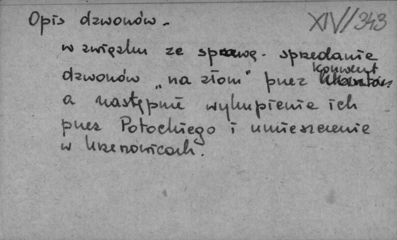 Opis dzwonów -
XIV/343
w związku ze sprawą - sprzedanie
dzwonów „na złom" przez konwent
a następnie wykupienie ich
przez Potockiego i umieszczenie
w Krzenowicach.